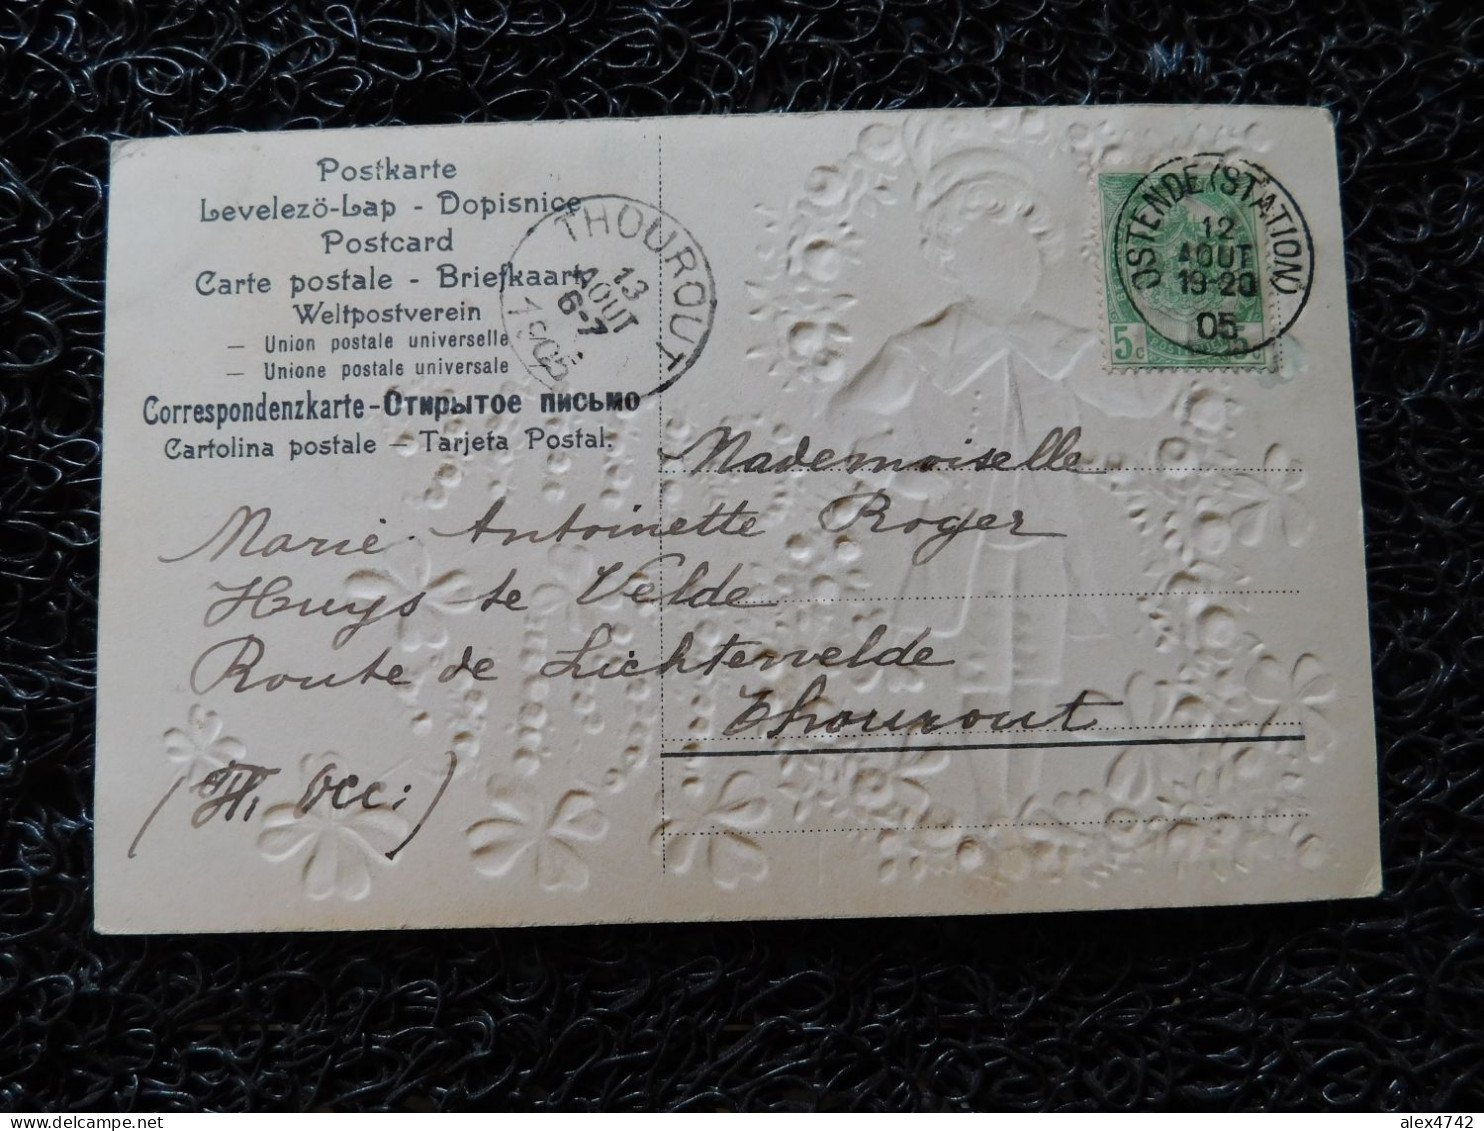 Postkarte
Levelezö-Lap - Dopisnice
Postcard
Carte postale - Briefkaart
Weltpostverein
— Union postale universelle
— Unione postale universale
Correspondenzkarte - Открытое письмо
Cartolina postale — Tarjeta Postal.
THOUROUT
13
AOUT
6-7
1905
OSTENDE (STATION)
12
AOUT
19-20
05
5c
Mademoiselle
Marie Antoinette Roger
Huys te Velde
Route de Lichtervelde
Thourout
(Fl. Occ:)
alex4742
delcampe.net